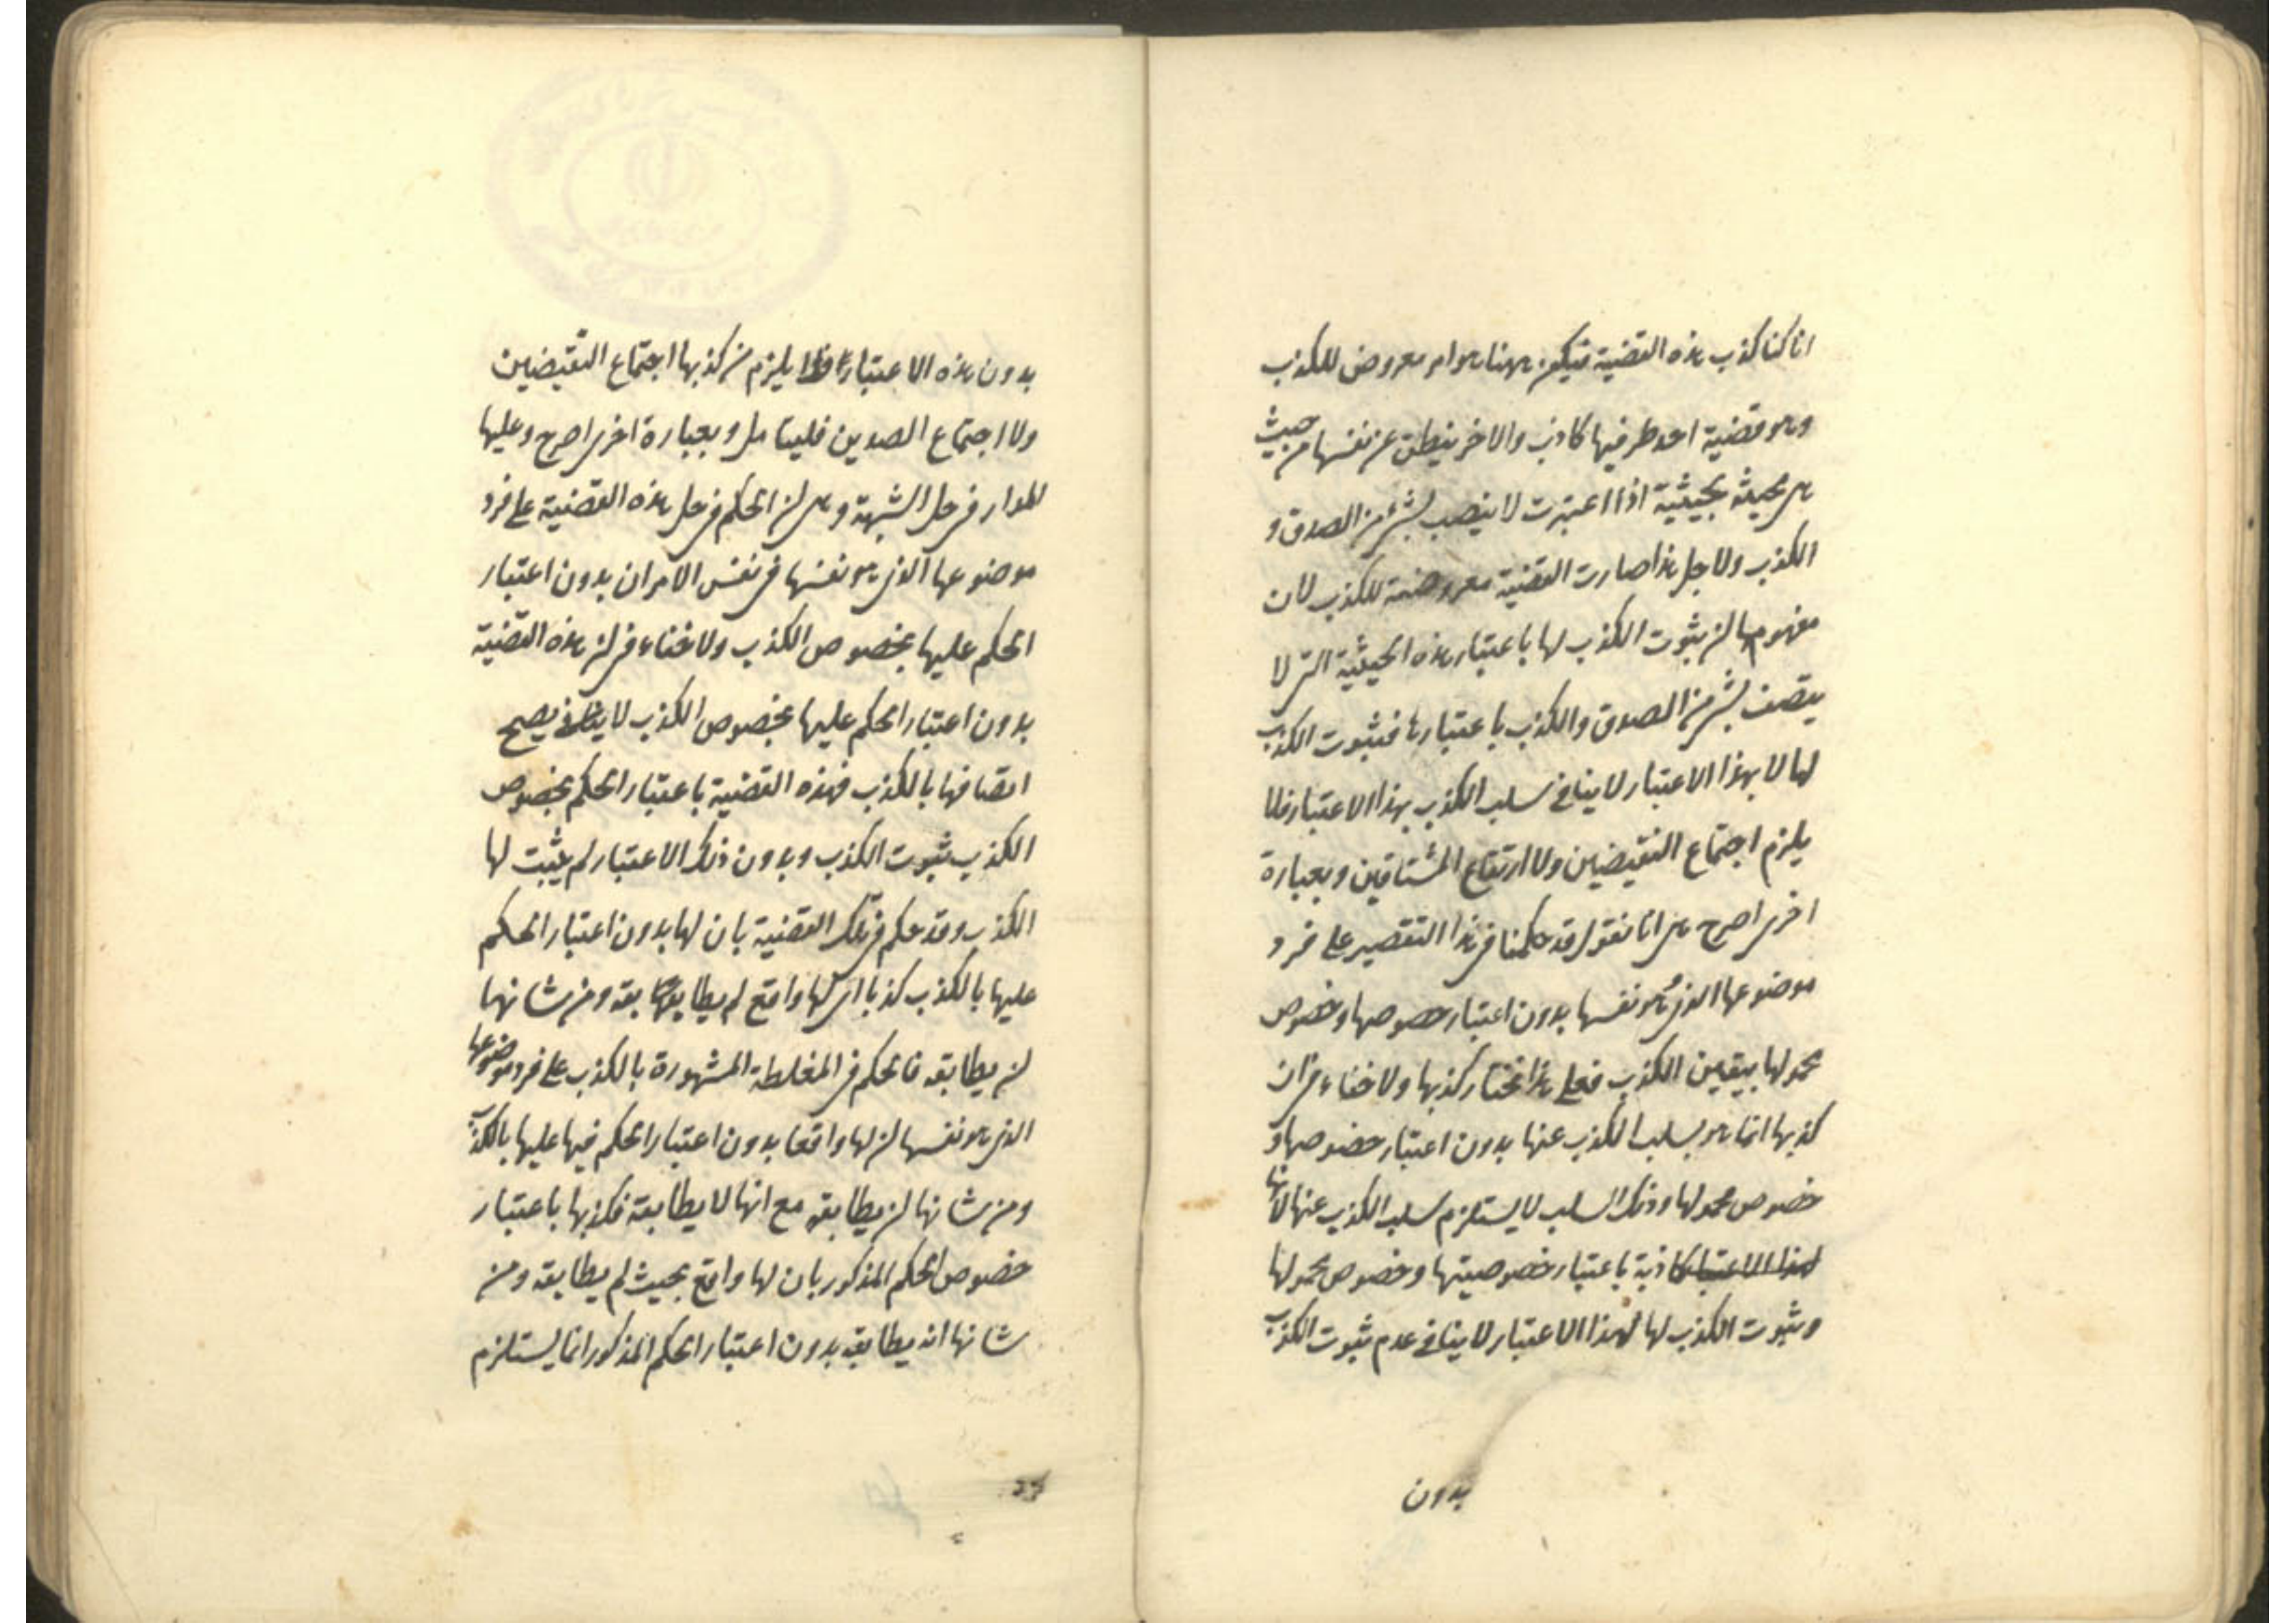 انا كنا كذب هذه القضية فيكون ههنا هو امر معروض للكذب
وهو قضية احد طرفيها كاذب والاخر ينطلق عن نفسها من حيث
هى بحيثية اذا اعتبرت لا يتصف بشئ من الصدق و
الكذب ولاجل هذا صارت القضية معروضة للكذب لان
مفهومها لن ثبوت الكذب لها باعتبار هذه الحيثية التى لا
يتصف بشئ من الصدق والكذب باعتبارها فثبوت الكذب
لها لا بهذا الاعتبار لا ينافى سلب الكذب بهذا الاعتبار فلا
يلزم اجتماع النقيضين ولا ارتفاع المتنافيين وبعبارة
اخرى اصرح هى انا نقول قد حكمنا فى هذا التقصير على فرد
موضوعها الذى هو نفسها بدون اعتبار خصوصها وخصوص
محمولها بيقين الكذب فعلى هذا نختار كذبها ولا خفاء فى ان
كذبها انما هو بسلب الكذب عنها بدون اعتبار خصوصها و
خصوص محمولها وذلك السلب لا يستلزم سلب الكذب عنها لانها
لهذا الاعتبار كاذبة باعتبار خصوصيتها وخصوص محمولها
وثبوت الكذب لها لهذا الاعتبار لا ينافى عدم ثبوت الكذب
بدون
بدون هذه الاعتبار فلا يلزم من كذبها اجتماع النقيضين
ولا اجتماع الصدين فليتامل وبعبارة اخرى اصرح وعليها
المدار فى حل الشبهة وهى لن الحكم فى حل هذه القضية على فرد
موضوعها الذى هو نفسها فى نفس الامر ان بدون اعتبار
الحكم عليها بخصوص الكذب ولا خفاء فى لن هذه القضية
بدون اعتبار الحكم عليها بخصوص الكذب لا يصح
اتصافها بالكذب فهذه القضية باعتبار الحكم بخصوص
الكذب ثبوت الكذب وبدون ذلك الاعتبار لم يثبت لها
الكذب وقد حكم فى تلك القضية بان لها بدون اعتبار الحكم
عليها بالكذب كذبا اى لها واقع لم يطابقه ومن شانها
لن يطابقه فالحكم فى المغلطة المشهورة بالكذب على فرد موضوعها
الذى هو نفسها لن لها واقعا بدون اعتبار الحكم فيها عليها بالكذب
ومن شانها لن يطابقه مع انها لا يطابقه فكذبها باعتبار
خصوص الحكم المذكور بان لها واقع بحيث لم يطابقه ومن
شانها انه يطابقه بدون اعتبار الحكم المذكور انما يستلزم